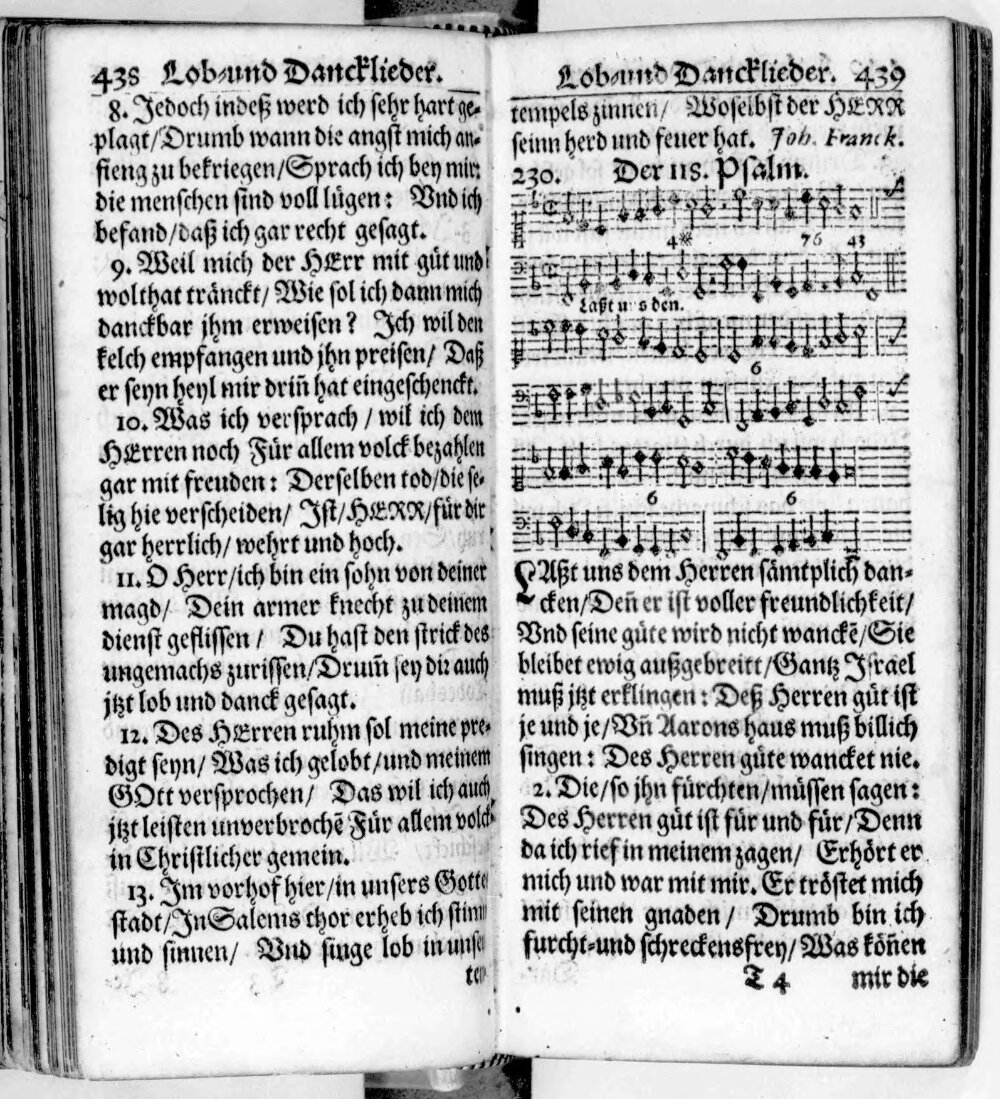 438 Lob-und Dancklieder.
8. Jedoch indeß werd ich sehr hart ge-
plagt/Drumb wann die angst mich an-
fieng zu bekriegen/Sprach ich bey mir:
die menschen sind voll lügen: Vnd ich
befand/daß ich gar recht gesagt.
9. Weil mich der HErr mit güt und
wolthat tränckt/ Wie sol ich dann mich
danckbar jhm erweisen? Ich wil den
kelch empfangen und jhn preisen/ Daß
er seyn heyl mir driñ hat eingeschenckt.
10. Was ich versprach / wil ich dem
HErren noch Für allem volck bezahlen
gar mit freuden: Derselben tod/die se-
lig hie verscheiden/ Ist/HERR/für dir
gar herrlich/ wehrt und hoch.
11. O Herr/ich bin ein sohn von deiner
magd/ Dein armer knecht zu deinem
dienst geflissen / Du hast den strick des
ungemachs zurissen/Drum̃ sey dir auch
jtzt lob und danck gesagt.
12. Des HErren ruhm sol meine pre-
digt seyn/ Was ich gelobt/und meinem
GOtt versprochen/ Das wil ich auch
jtzt leisten unverbrochẽ Für allem volck
in Christlicher gemein.
13. Im vorhof hier/in unsers Gotte
stadt/In Salems thor erheb ich stim
und sinnen/ Vnd singe lob in unse
tem
Lob-und Dancklieder. 439
tempels zinnen/ Woselbst der HERR
seinn herd und feuer hat. Joh. Franck.
230. Der 118. Psalm.
4* 76 43
Laßt uns den.
6
6 6
LAßt uns dem Herren sämptplich dan-
cken/Deñ er ist voller freundlichkeit/
Vnd seine güte wird nicht wanckẽ/Sie
bleibet ewig außgebreitt/Gantz Israel
muß jtzt erklingen: Deß Herren güt ist
je und je/Vñ Aarons haus muß billich
singen: Des Herren güte wancket nie.
2. Die/so jhn fürchten/müssen sagen:
Des Herren güt ist für und für/Denn
da ich rief in meinem zagen/ Erhört er
mich und war mit mir. Er tröstet mich
mit seinen gnaden/ Drumb bin ich
furcht-und schreckensfrey/Was köñen
T 4 mir die